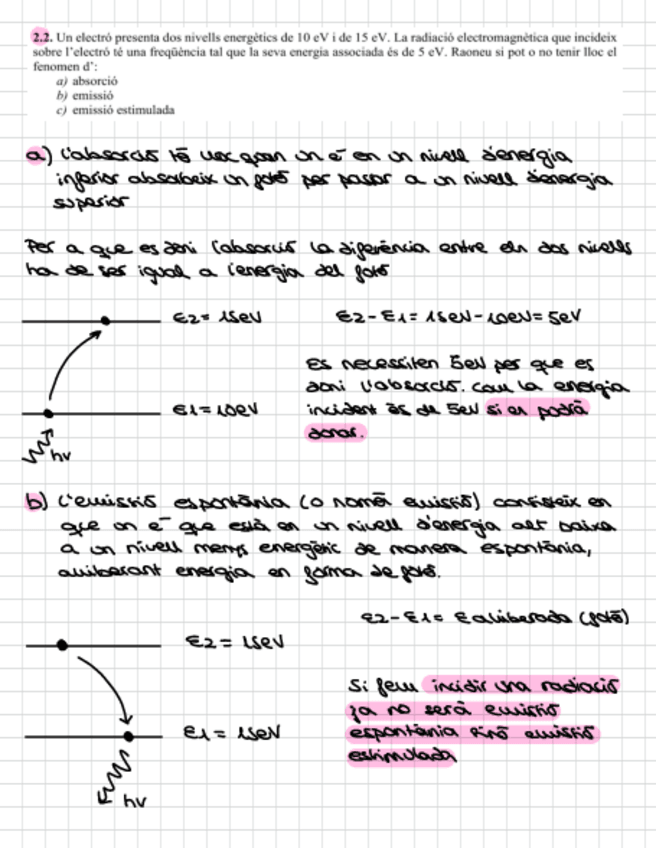 2.2. Un electró presenta dos nivells energètics de 10 eV i de 15 eV. La radiació electromagnètica que incideix
sobre l'electró té una freqüència tal que la seva energia associada és de 5 eV. Raoneu si pot o no tenir lloc el
fenomen d':
a) absorció
b) emissió
c) emissió estimulada
a) L'absorció té lloc quan un e⁻ en un nivell d'energia
inferior absorbeix un fotó per passar a un nivell d'energia
superior
Per a que es doni l'absorció la diferència entre els dos nivells
ha de ser igual a l'energia del fotó
E2 = 15eV E2 - E1 = 15eV - 10eV = 5eV
Es necessiten 5eV per que es
doni l'absorció. Com la energia
E1 = 10eV incident és de 5eV si es podrà
donar.
hv
b) L'emissió espontània (o només emissió) consisteix en
que un e⁻ que està en un nivell d'energia alt baixa
a un nivell menys energètic de manera espontània,
alliberant energia en forma de fotó.
E2 - E1 = E alliberada (fotó)
E2 = 15eV
Si fem incidir una radiació
ja no serà emissió
E1 = 15eV espontània sinó emissió
estimulada
hv